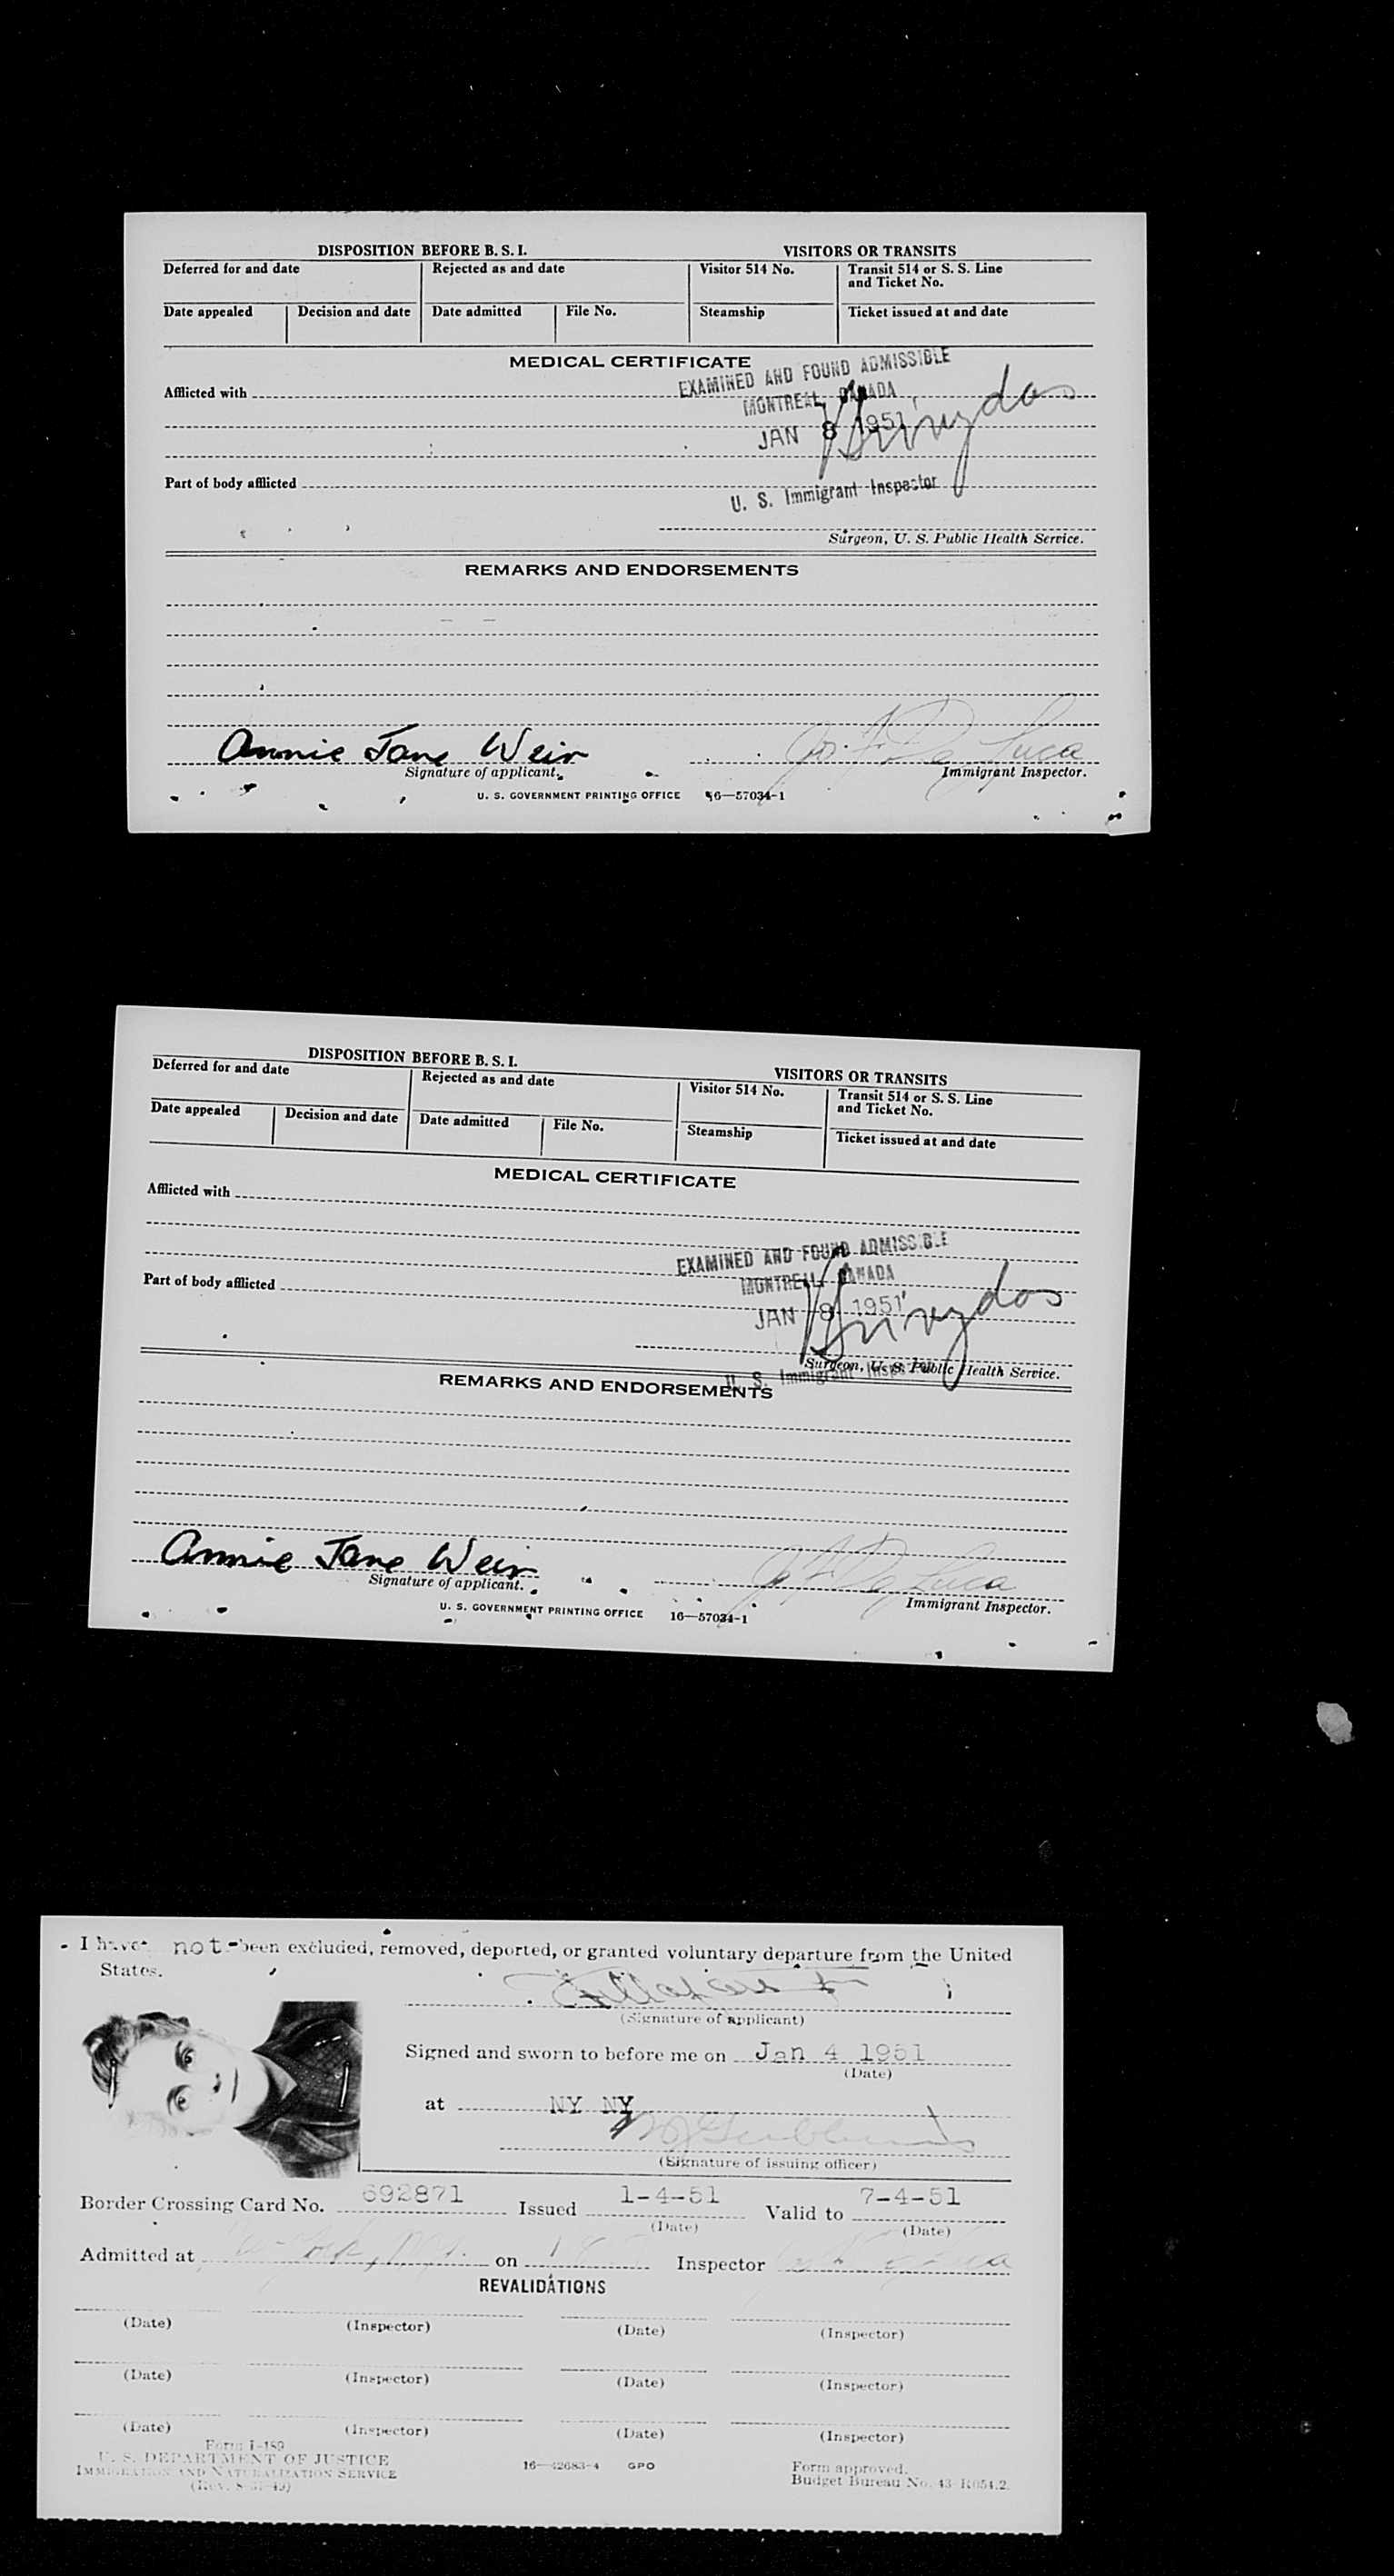 DISPOSITION BEFORE B. S. I. VISITORS OR TRANSITS
Deferred for and date Rejected as and date Visitor 514 No. Transit 514 or S. S. Line
and Ticket No.
Date appealed Decision and date Date admitted File No. Steamship Ticket issued at and date
MEDICAL CERTIFICATE
EXAMINED AND FOUND ADMISSIBLE
Afflicted with
MONTREAL, CANADA
JAN 8 1951
Part of body afflicted
U. S. Immigrant Inspector
Surgeon, U. S. Public Health Service.
REMARKS AND ENDORSEMENTS
Annie Jane Weir Jos. F. De Luca
Signature of applicant. Immigrant Inspector.
U. S. GOVERNMENT PRINTING OFFICE 16—57034-1
DISPOSITION BEFORE B. S. I. VISITORS OR TRANSITS
Deferred for and date Rejected as and date Visitor 514 No. Transit 514 or S. S. Line
and Ticket No.
Date appealed Decision and date Date admitted File No. Steamship Ticket issued at and date
MEDICAL CERTIFICATE
Afflicted with
EXAMINED AND FOUND ADMISSIBLE
MONTREAL, CANADA
Part of body afflicted
JAN 8 1951
Surgeon, U. S. Public Health Service.
U. S. Immigrant Inspector
REMARKS AND ENDORSEMENTS
Annie Jane Weir De Luca
Signature of applicant. Immigrant Inspector.
U. S. GOVERNMENT PRINTING OFFICE 16—57034-1
I have not been excluded, removed, deported, or granted voluntary departure from the United
States.
(Signature of applicant)
Signed and sworn to before me on Jan 4 1951
(Date)
at NY NY
(Signature of issuing officer)
Border Crossing Card No. 692871 Issued 1-4-51 Valid to 7-4-51
(Date) (Date)
Admitted at on Inspector
REVALIDATIONS
(Date) (Inspector) (Date) (Inspector)
(Date) (Inspector) (Date) (Inspector)
(Date) (Inspector) (Date) (Inspector)
Form I-189
U. S. DEPARTMENT OF JUSTICE
IMMIGRATION AND NATURALIZATION SERVICE
16—42683-4 GPO
Form approved.
Budget Bureau No. 43-R054.2.